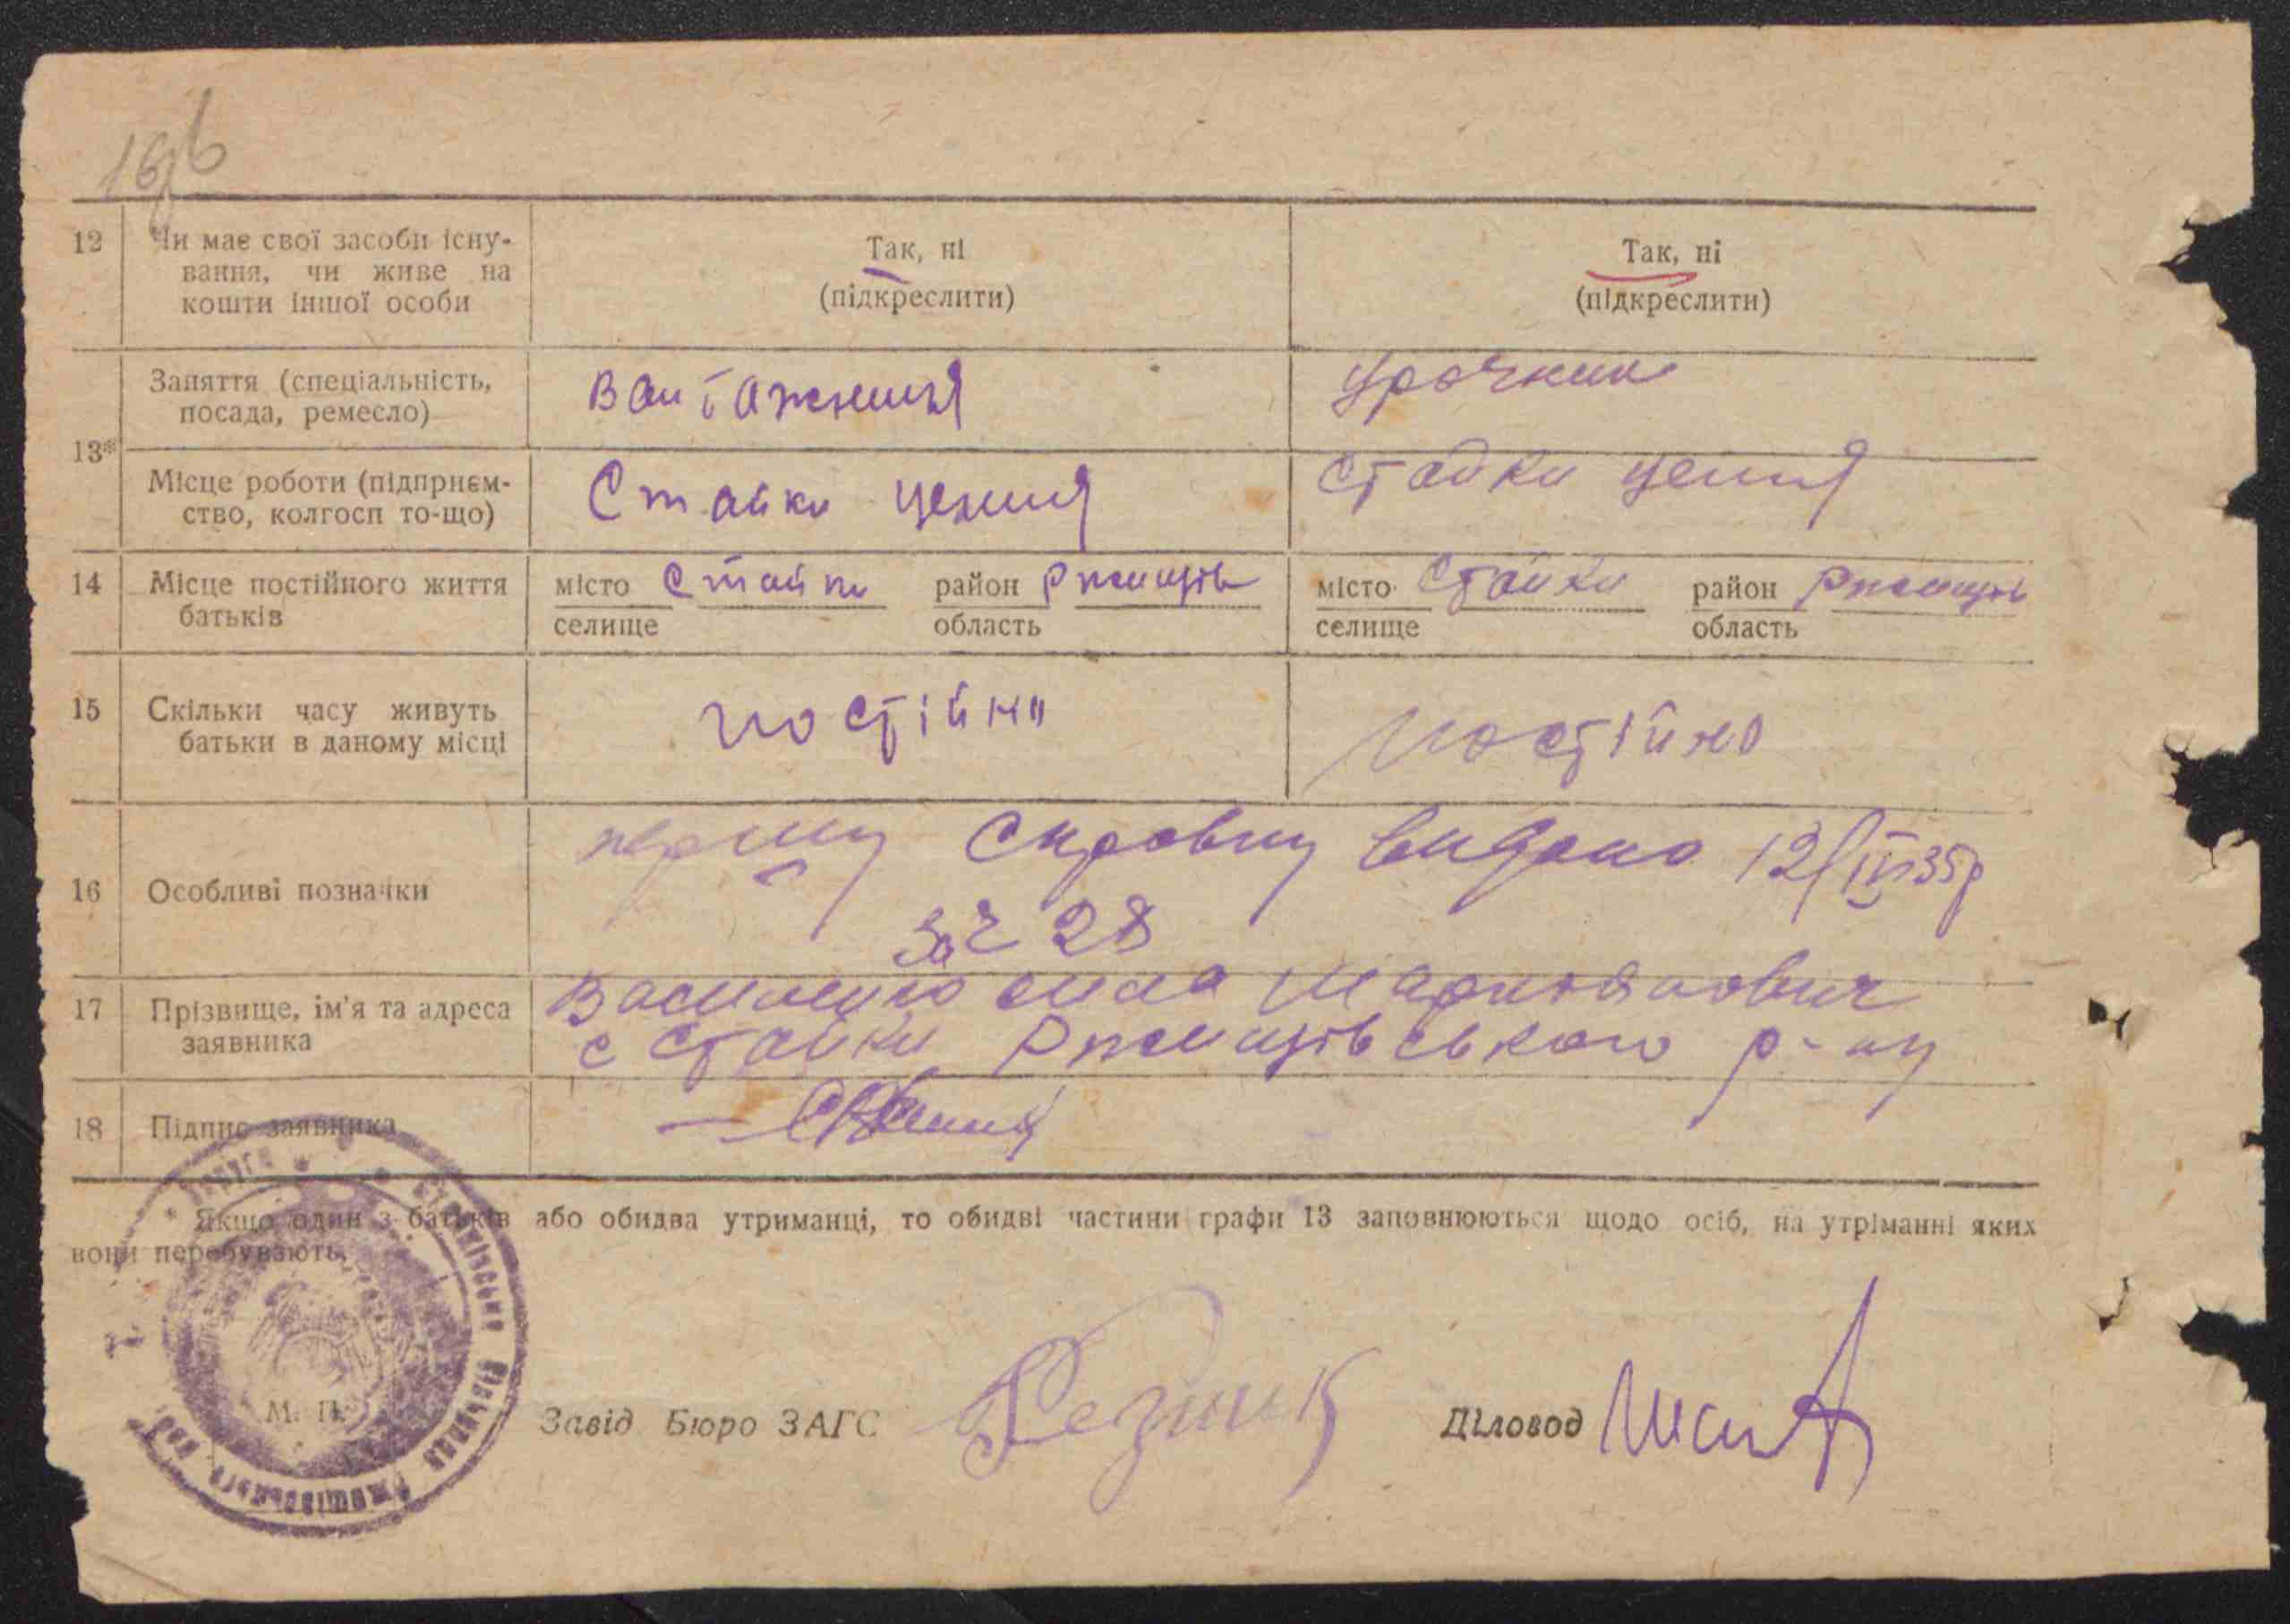 12 Чи має свої засоби існу- Так, ні Так, ні
вання, чи живе на (підкреслити) (підкреслити)
кошти іншої особи
13* Заняття (спеціальність,
посада, ремесло)
Місце роботи (підприєм- Стайки Стайки
ство, колгосп то-що)
14 Місце постійного життя місто Стайки район Ржищів місто Стайки район Ржищів
батьків селище область селище область
15 Скільки часу живуть постійно постійно
батьки в даному місці
16 Особливі позначки першу видано 12/IV 35р
за № 28
17 Прізвище, ім'я та адреса Василенко
заявника с Стайки Ржищівського р-ну
18 Підпис заявника
Якщо один з батьків або обидва утриманці, то обидві частини графи 13 заповнюються щодо осіб, на утріманні яких
вони перебувають.
М. П.
Завід Бюро ЗАГС Резник Діловод